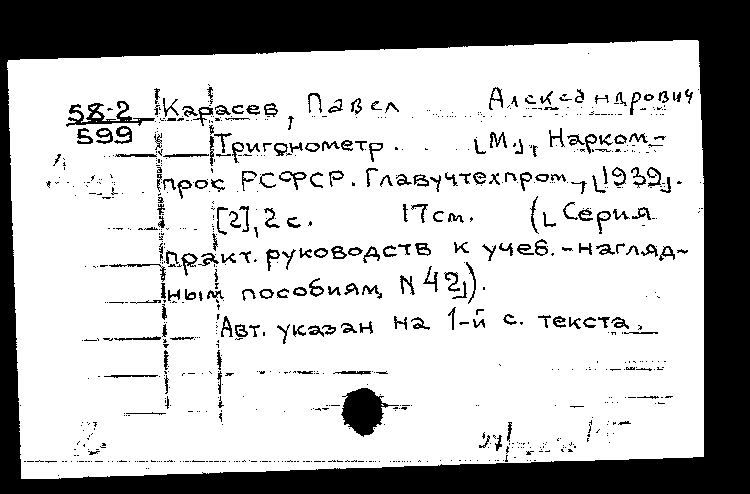 58-2 Карасев, Павел Александрович
599 Тригонометр. [М.], Нарком-
прос РСФСР. Главучтехпром, [1939].
[2], 2 с. 17 см. ([Серия
практ. руководств к учеб.-нагляд-
ным пособиям, N 42]).
Авт. указан на 1-й с. текста.